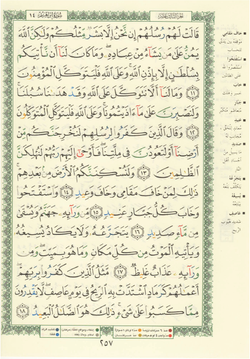 سورة إبراهيم ١٤
قالت لهم رسلهم إن نحن إلا بشر مثلكم ولكن الله
يمن على من يشاء من عباده وما كان لنا أن نأتيكم
بسلطان إلا بإذن الله وعلى الله فليتوكل المؤمنون
١١ وما لنا ألا نتوكل على الله وقد هدانا سبلنا
ولنصبرن على ما آذيتمونا وعلى الله فليتوكل المتوكلون
١٢ وقال الذين كفروا لرسلهم لنخرجنكم من
أرضنا أو لتعودن في ملتنا فأوحى إليهم ربهم لنهلكن
الظالمين ١٣ ولنسكننكم الأرض من بعدهم
ذلك لمن خاف مقامي وخاف وعيد ١٤ واستفتحوا
وخاب كل جبار عنيد ١٥ من ورائه جهنم ويسقى
من ماء صديد ١٦ يتجرعه ولا يكاد يسيغه
ويأتيه الموت من كل مكان وما هو بميت ومن
ورائه عذاب غليظ ١٧ مثل الذين كفروا بربهم
أعمالهم كرماد اشتدت به الريح في يوم عاصف لا يقدرون
مما كسبوا على شيء ذلك هو الضلال البعيد ١٨
٢٥٧